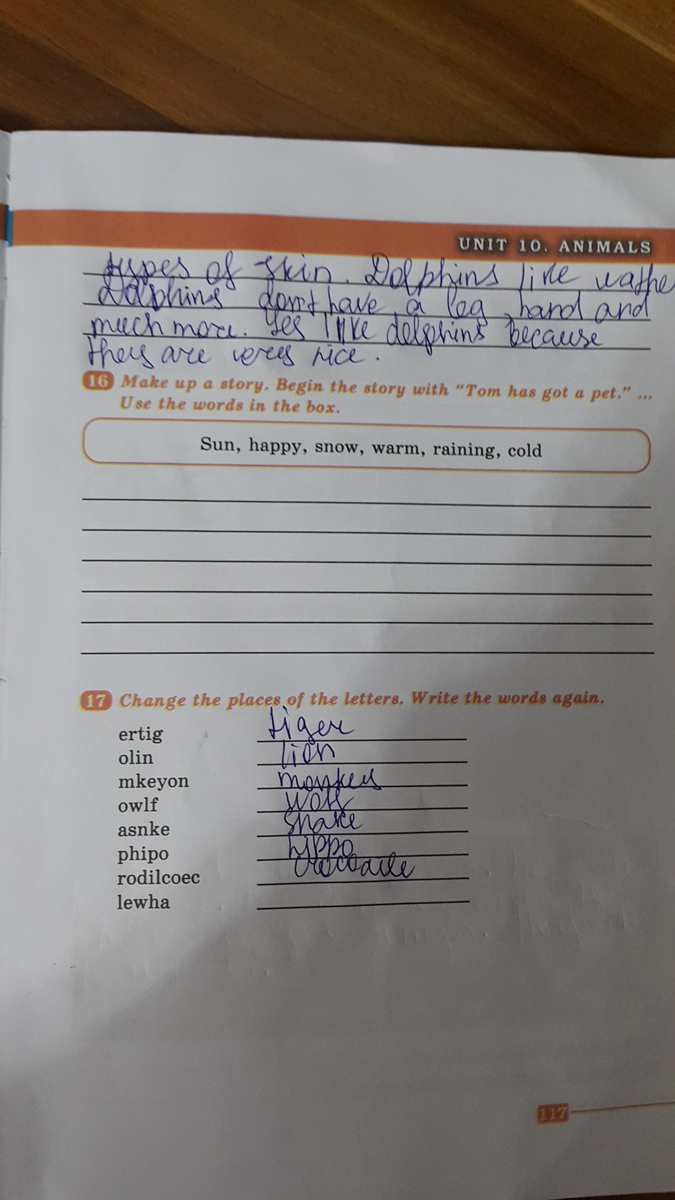 UNIT 10. ANIMALS
types of skin. Dolphins like wathe
Dolphins don't have a leg, hand and
much more. Yes I like delphins because
they are veres nice.
16 Make up a story. Begin the story with "Tom has got a pet." ...
Use the words in the box.
Sun, happy, snow, warm, raining, cold
17 Change the places of the letters. Write the words again.
ertig tiger
olin lion
mkeyon monkey
owlf wolf
asnke snake
phipo hippo
rodilcoec crocodile
lewha
117